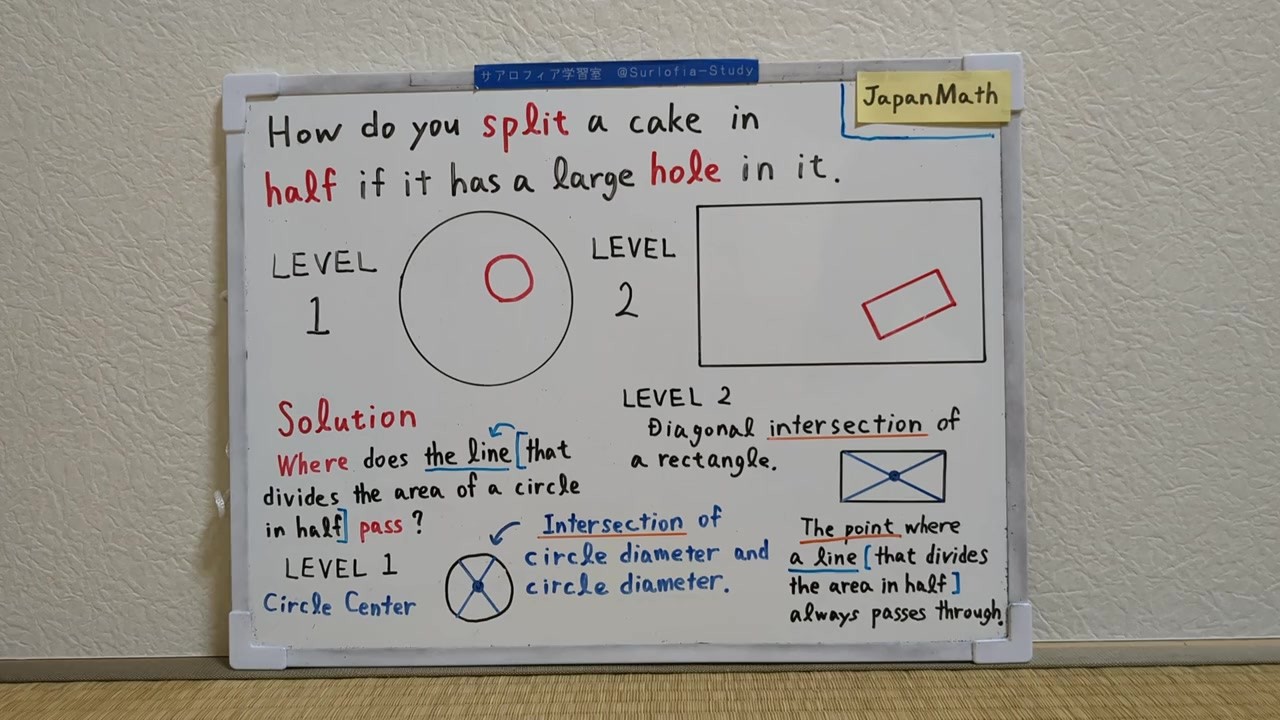 サアロフィア学習室 @Surlofia-Study
JapanMath
How do you split a cake in
half if it has a large hole in it.
LEVEL
1
LEVEL
2
Solution
Where does the line [that
divides the area of a circle
in half] pass?
LEVEL 1
Circle Center
Intersection of
circle diameter and
circle diameter.
LEVEL 2
Diagonal intersection of
a rectangle.
The point where
a line [that divides
the area in half]
always passes through.